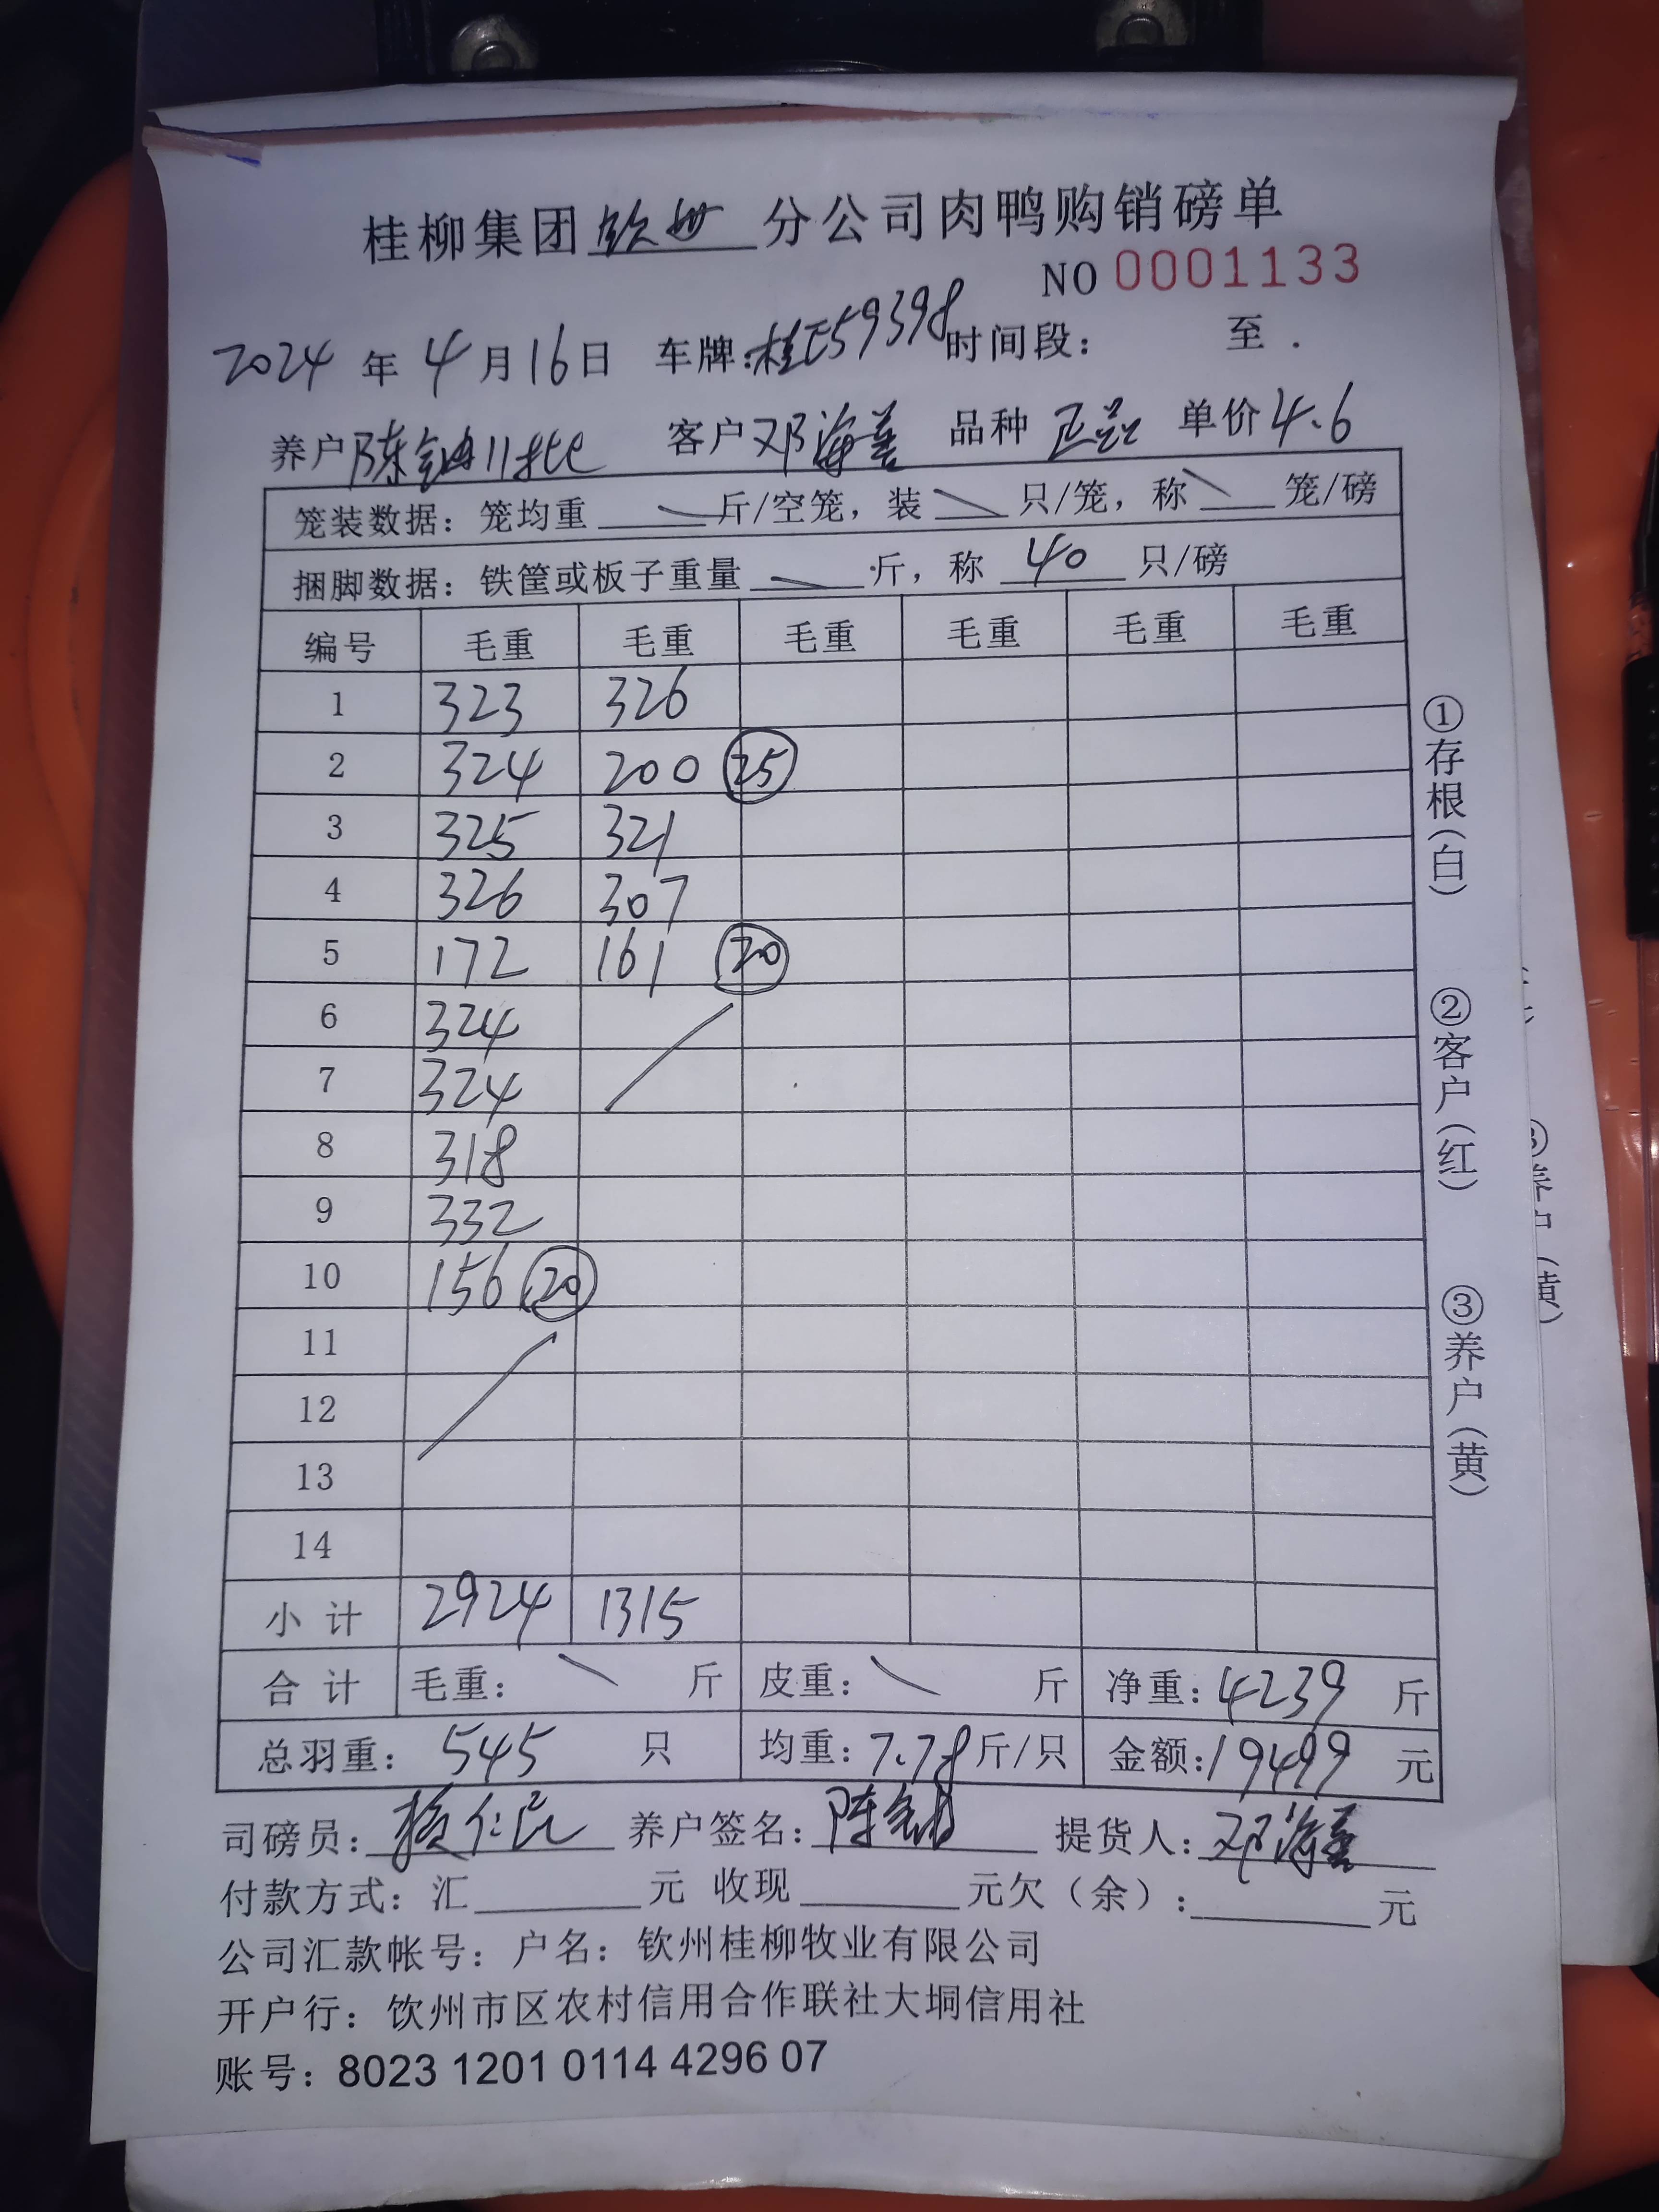 桂柳集团钦州分公司肉鸭购销磅单
NO 0001133
2024年4月16日 车牌:桂E59398 时间段: 至 .
养户 陈 11批 客户 邓海善 品种 正品 单价 4.6
笼装数据：笼均重 \ 斤/空笼，装 \ 只/笼，称 \ 笼/磅
捆脚数据：铁筐或板子重量 \ 斤，称 40 只/磅
编号 毛重 毛重 毛重 毛重 毛重 毛重
1 323 326
2 324 200 25
3 325 321
4 326 307
5 172 161 20
6 324
7 324
8 318
9 332
10 156 20
11
12
13
14
小计 2924 1315
合计 毛重: \ 斤 皮重: \ 斤 净重:4239 斤
总羽重: 545 只 均重:7.78斤/只 金额:19499 元
司磅员: 养户签名:陈 提货人:邓海善
付款方式: 汇 元 收现 元欠（余）: 元
公司汇款帐号: 户名: 钦州桂柳牧业有限公司
开户行: 饮州市区农村信用合作联社大垌信用社
账号: 8023 1201 0114 4296 07
①存根(白)
②客户(红)
③养户(黄)
③养户(黄)